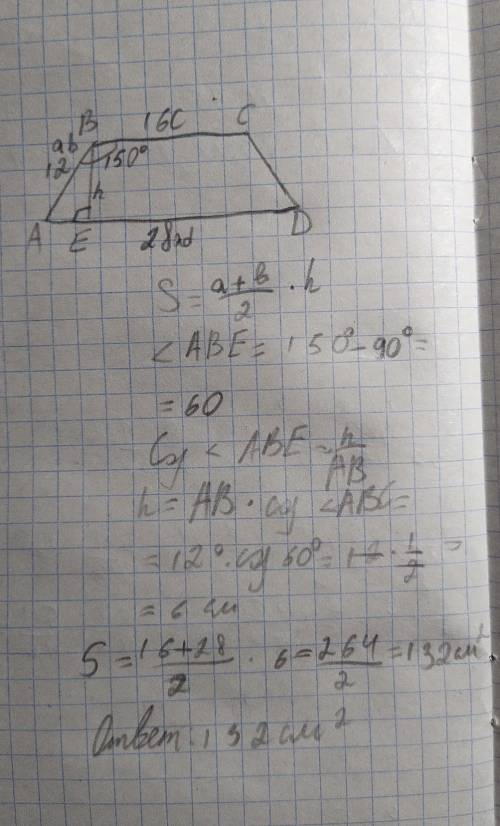 B 16C C
ab
12 150°
h
A E 28ad D
S = a+b/2 · h
<ABE = 150° - 90° =
= 60
Cos < ABE = h/AB
h = AB · cos <ABC =
= 12° · cos 60° = 12 · 1/2 =
= 6 см
S = 16+28/2 · 6 = 264/2 = 132 см²
Ответ. 132 см²